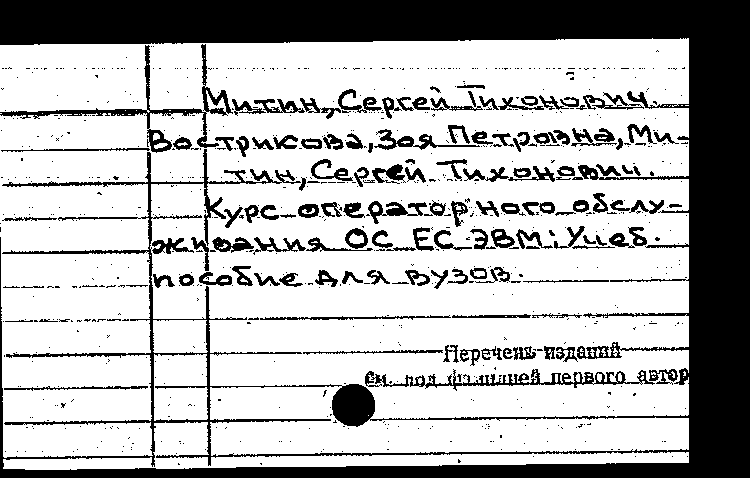 Митин, Сергей Тихонович.
Вострикова, Зоя Петровна, Ми-
тин, Сергей Тихонович.
Курс операторного обслу-
живания ОС ЕС ЭВМ: Учеб.
пособие для вузов.
Перечень изданий
См. под фамилией первого автор